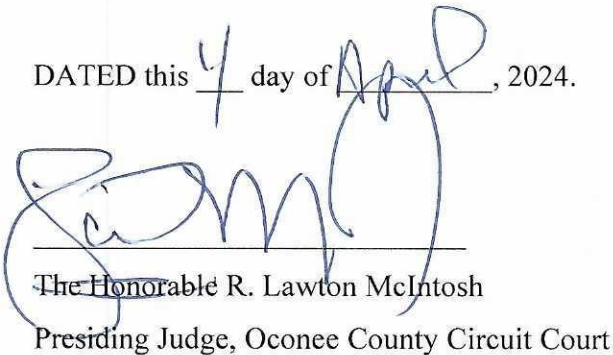 DATED this 4 day of April, 2024.
The Honorable R. Lawton McIntosh
Presiding Judge, Oconee County Circuit Court